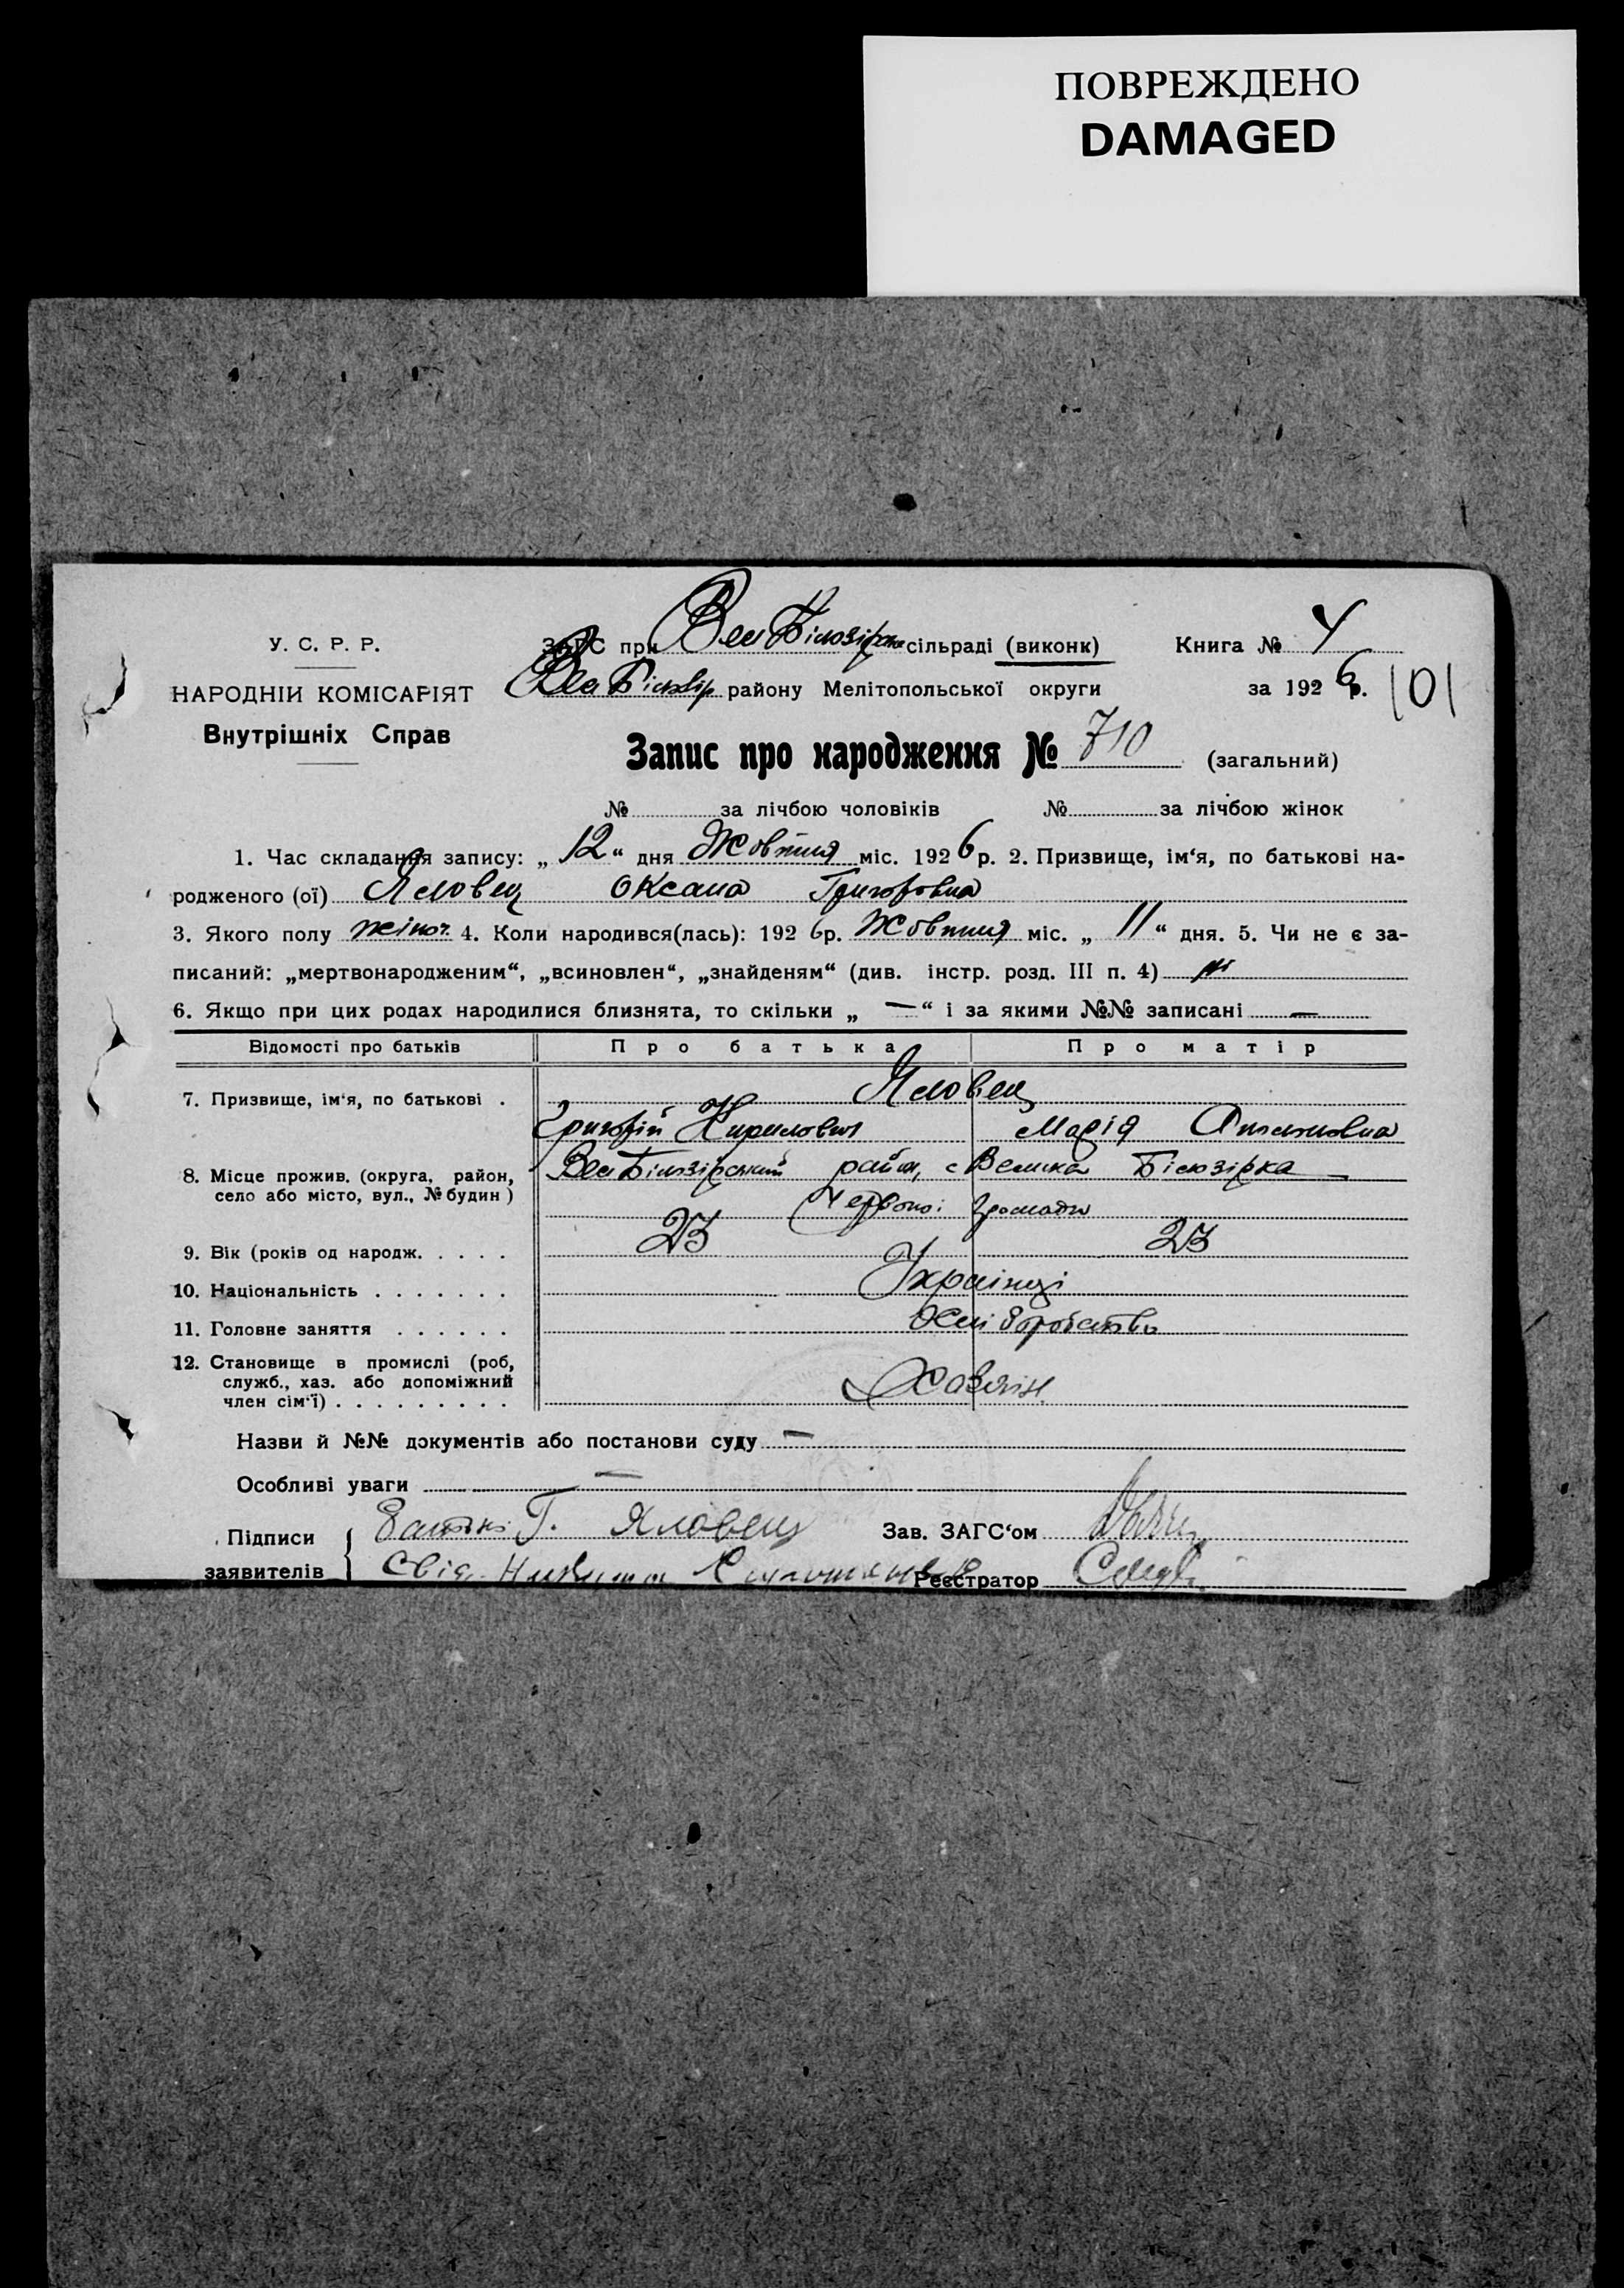 ПОВРЕЖДЕНО
DAMAGED
У. С. Р. Р.
НАРОДНІЙ КОМІСАРІЯТ
Внутрішніх Справ
ЗАГС при Вел Білозірськ сільраді (виконк)
Вел Білозір району Мелітопольської округи
Книга № 4
за 1926 р. 101
Запис про народження № 710 (загальний)
№ за лічбою чоловіків № за лічбою жінок
1. Час складання запису: „12“ дня Жовтня міс. 1926 р. 2. Призвище, ім‘я, по батькові на-
родженого (ої) Яловец Оксана Григоровна
3. Якого полу жіноч. 4. Коли народився(лась): 1926 р. Жовтня міс. „11“ дня. 5. Чи не є за-
писаний: „мертвонародженим“, „всиновлен“, „знайденям“ (див. інстр. розд. III п. 4) ні
6. Якщо при цих родах народилися близнята, то скільки „ — “ і за якими №№ записані —
Відомості про батьків Про батька Про матір
7. Призвище, ім‘я, по батькові . Яловец
Григорій Кирилович Марія
8. Місце прожив. (округа, район, Вел Білозірський район, с Велика Білозірка
село або місто, вул., № будин) Червоної Громади
9. Вік (років од народж. . . . . 23 23
10. Національність . . . . . . . Українці
11. Головне заняття . . . . . .
12. Становище в промислі (роб,
служб., хаз. або допоміжний Хазяїн
член сім‘ї) . . . . . . . . .
Назви й №№ документів або постанови суду —
Особливі уваги —
Підписи Г. Яловец Зав. ЗАГС‘ом
заявителів Свід. Реєстратор